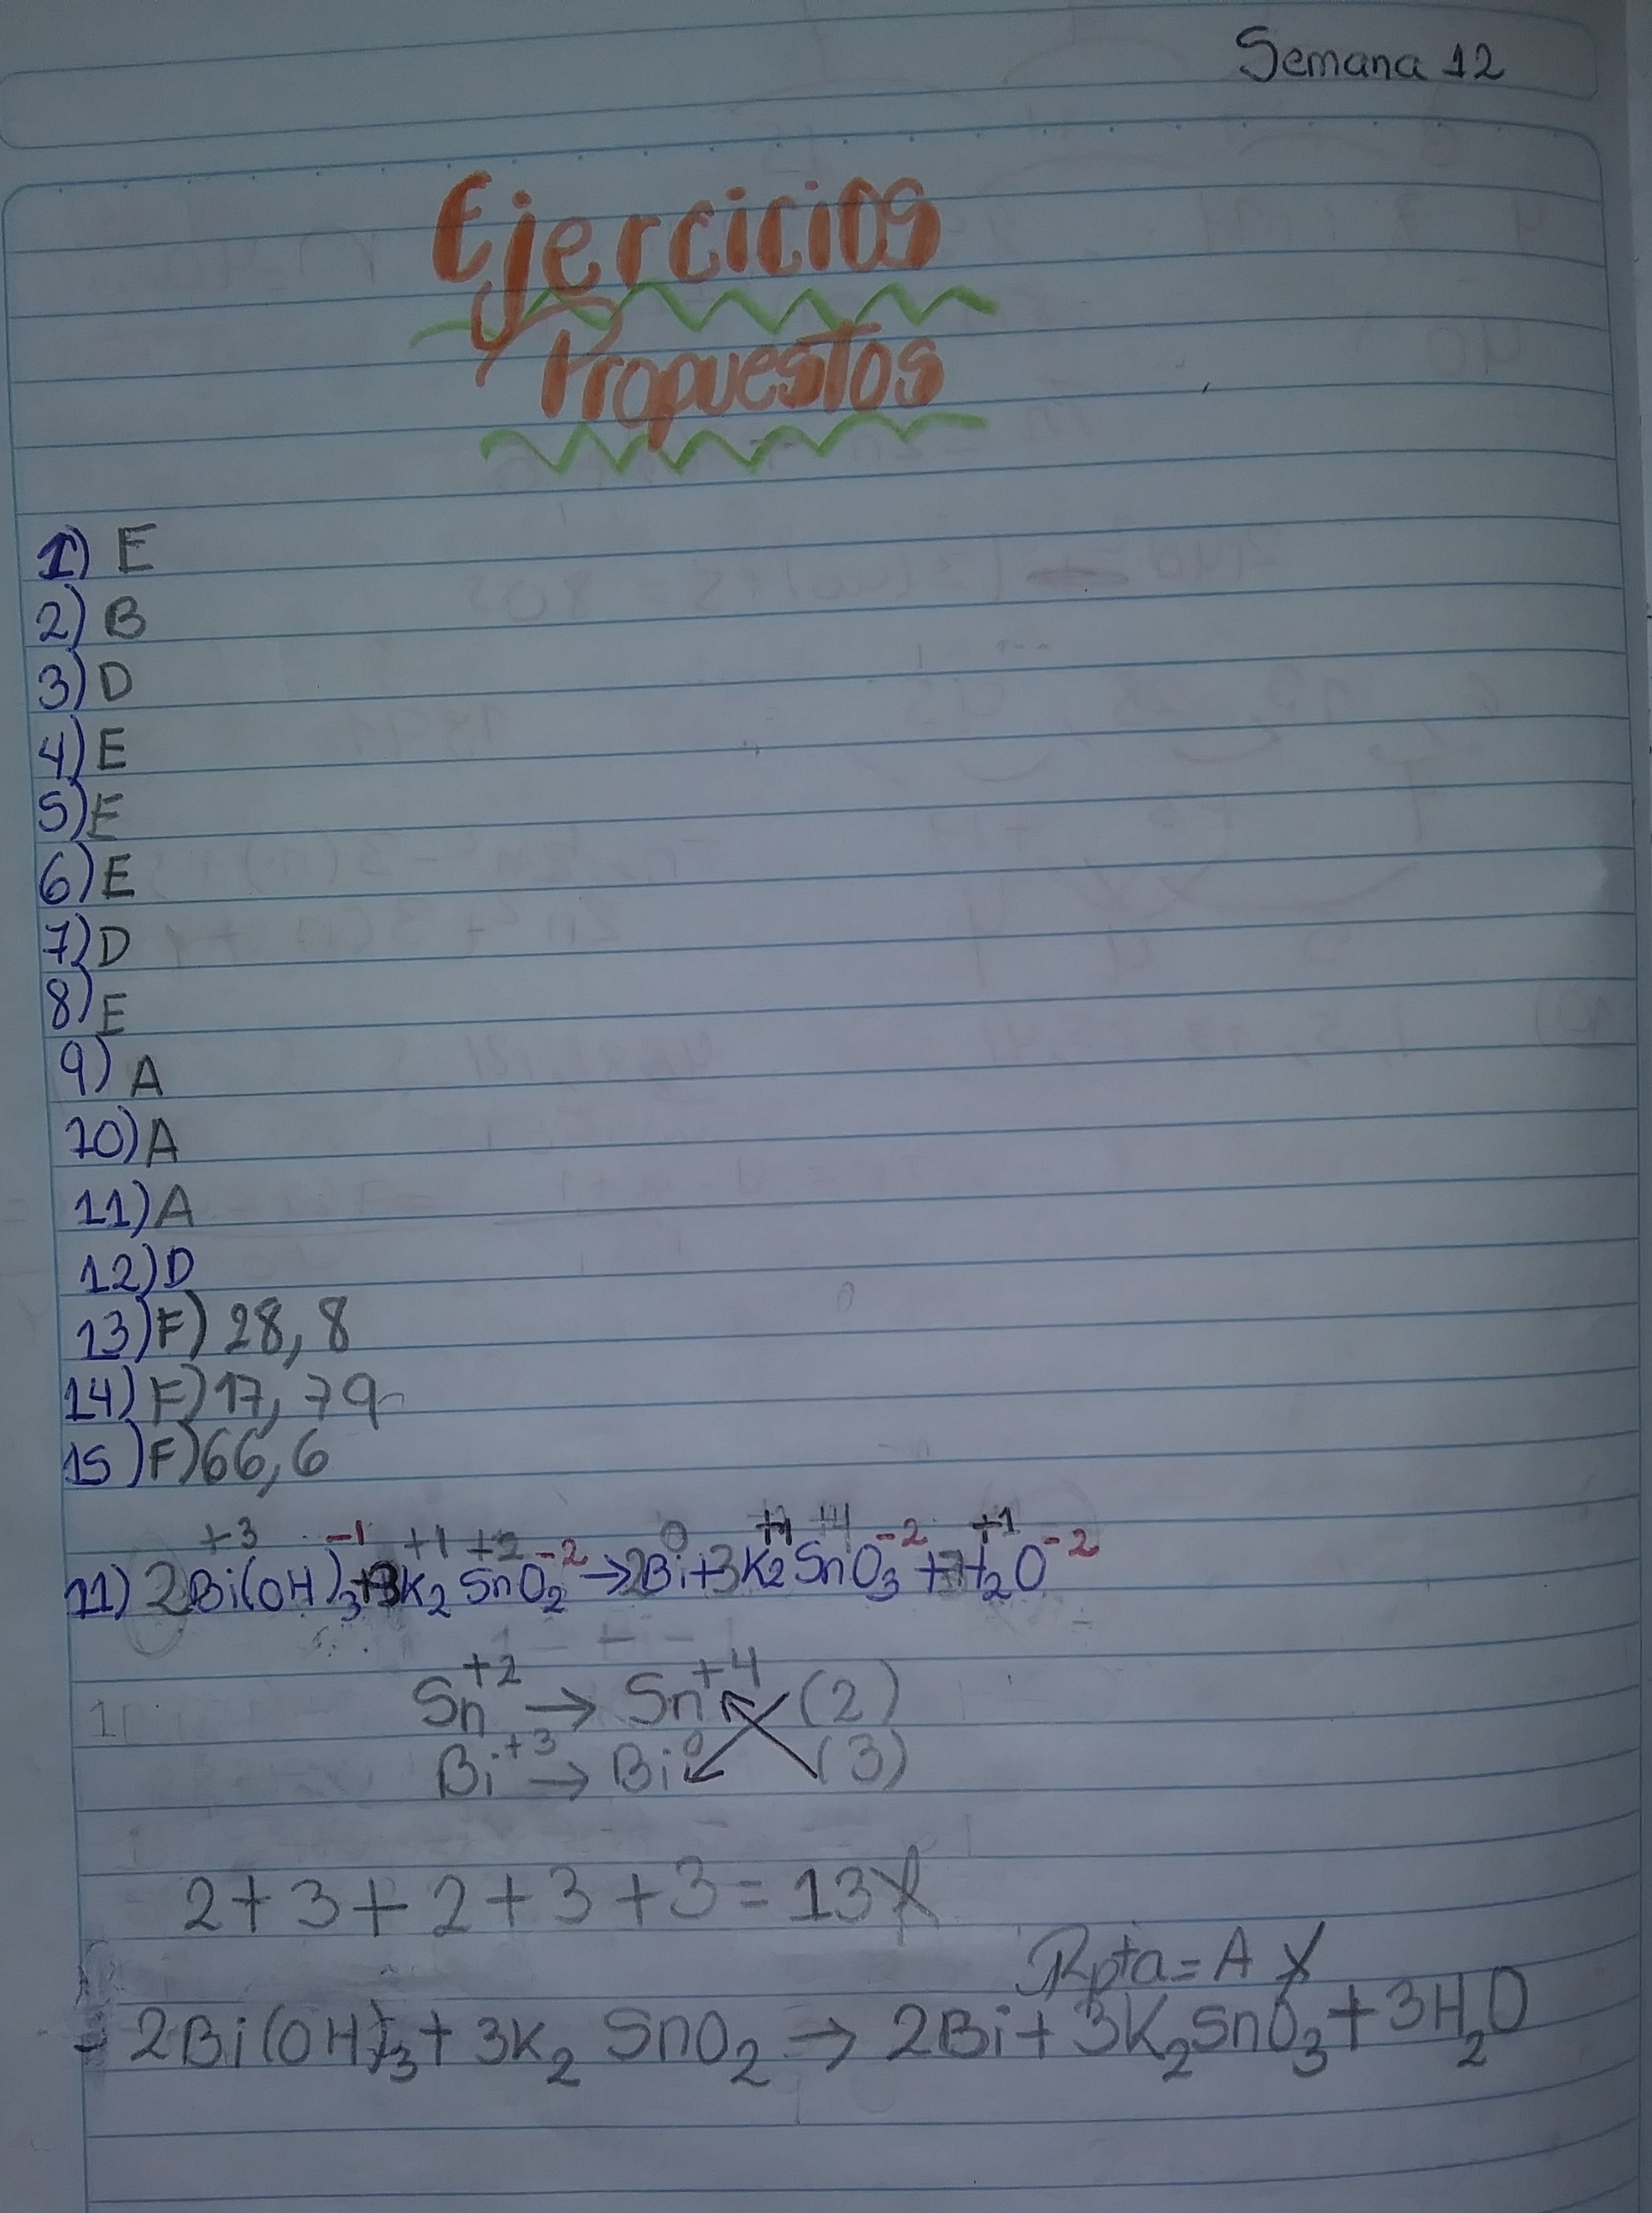 Semana 12
Ejercicios
Propuestos
1) E
2) B
3) D
4) E
5) E
6) E
7) D
8) E
9) A
10) A
11) A
12) D
13) F) 28,8
14) F) 17,79
15) F) 66,6
+3 -1 +1 +2 -2 0 +1 +4 -2 +1 -2
11) 2Bi(OH)3+3K2SnO2→2Bi+3K2SnO3+H2O
Sn+2 → Sn+4 (2)
Bi+3 → Bi0 (3)
2+3+2+3+3=13
Rpta=A
- 2Bi(OH)3+3K2SnO2→2Bi+3K2SnO3+3H2O